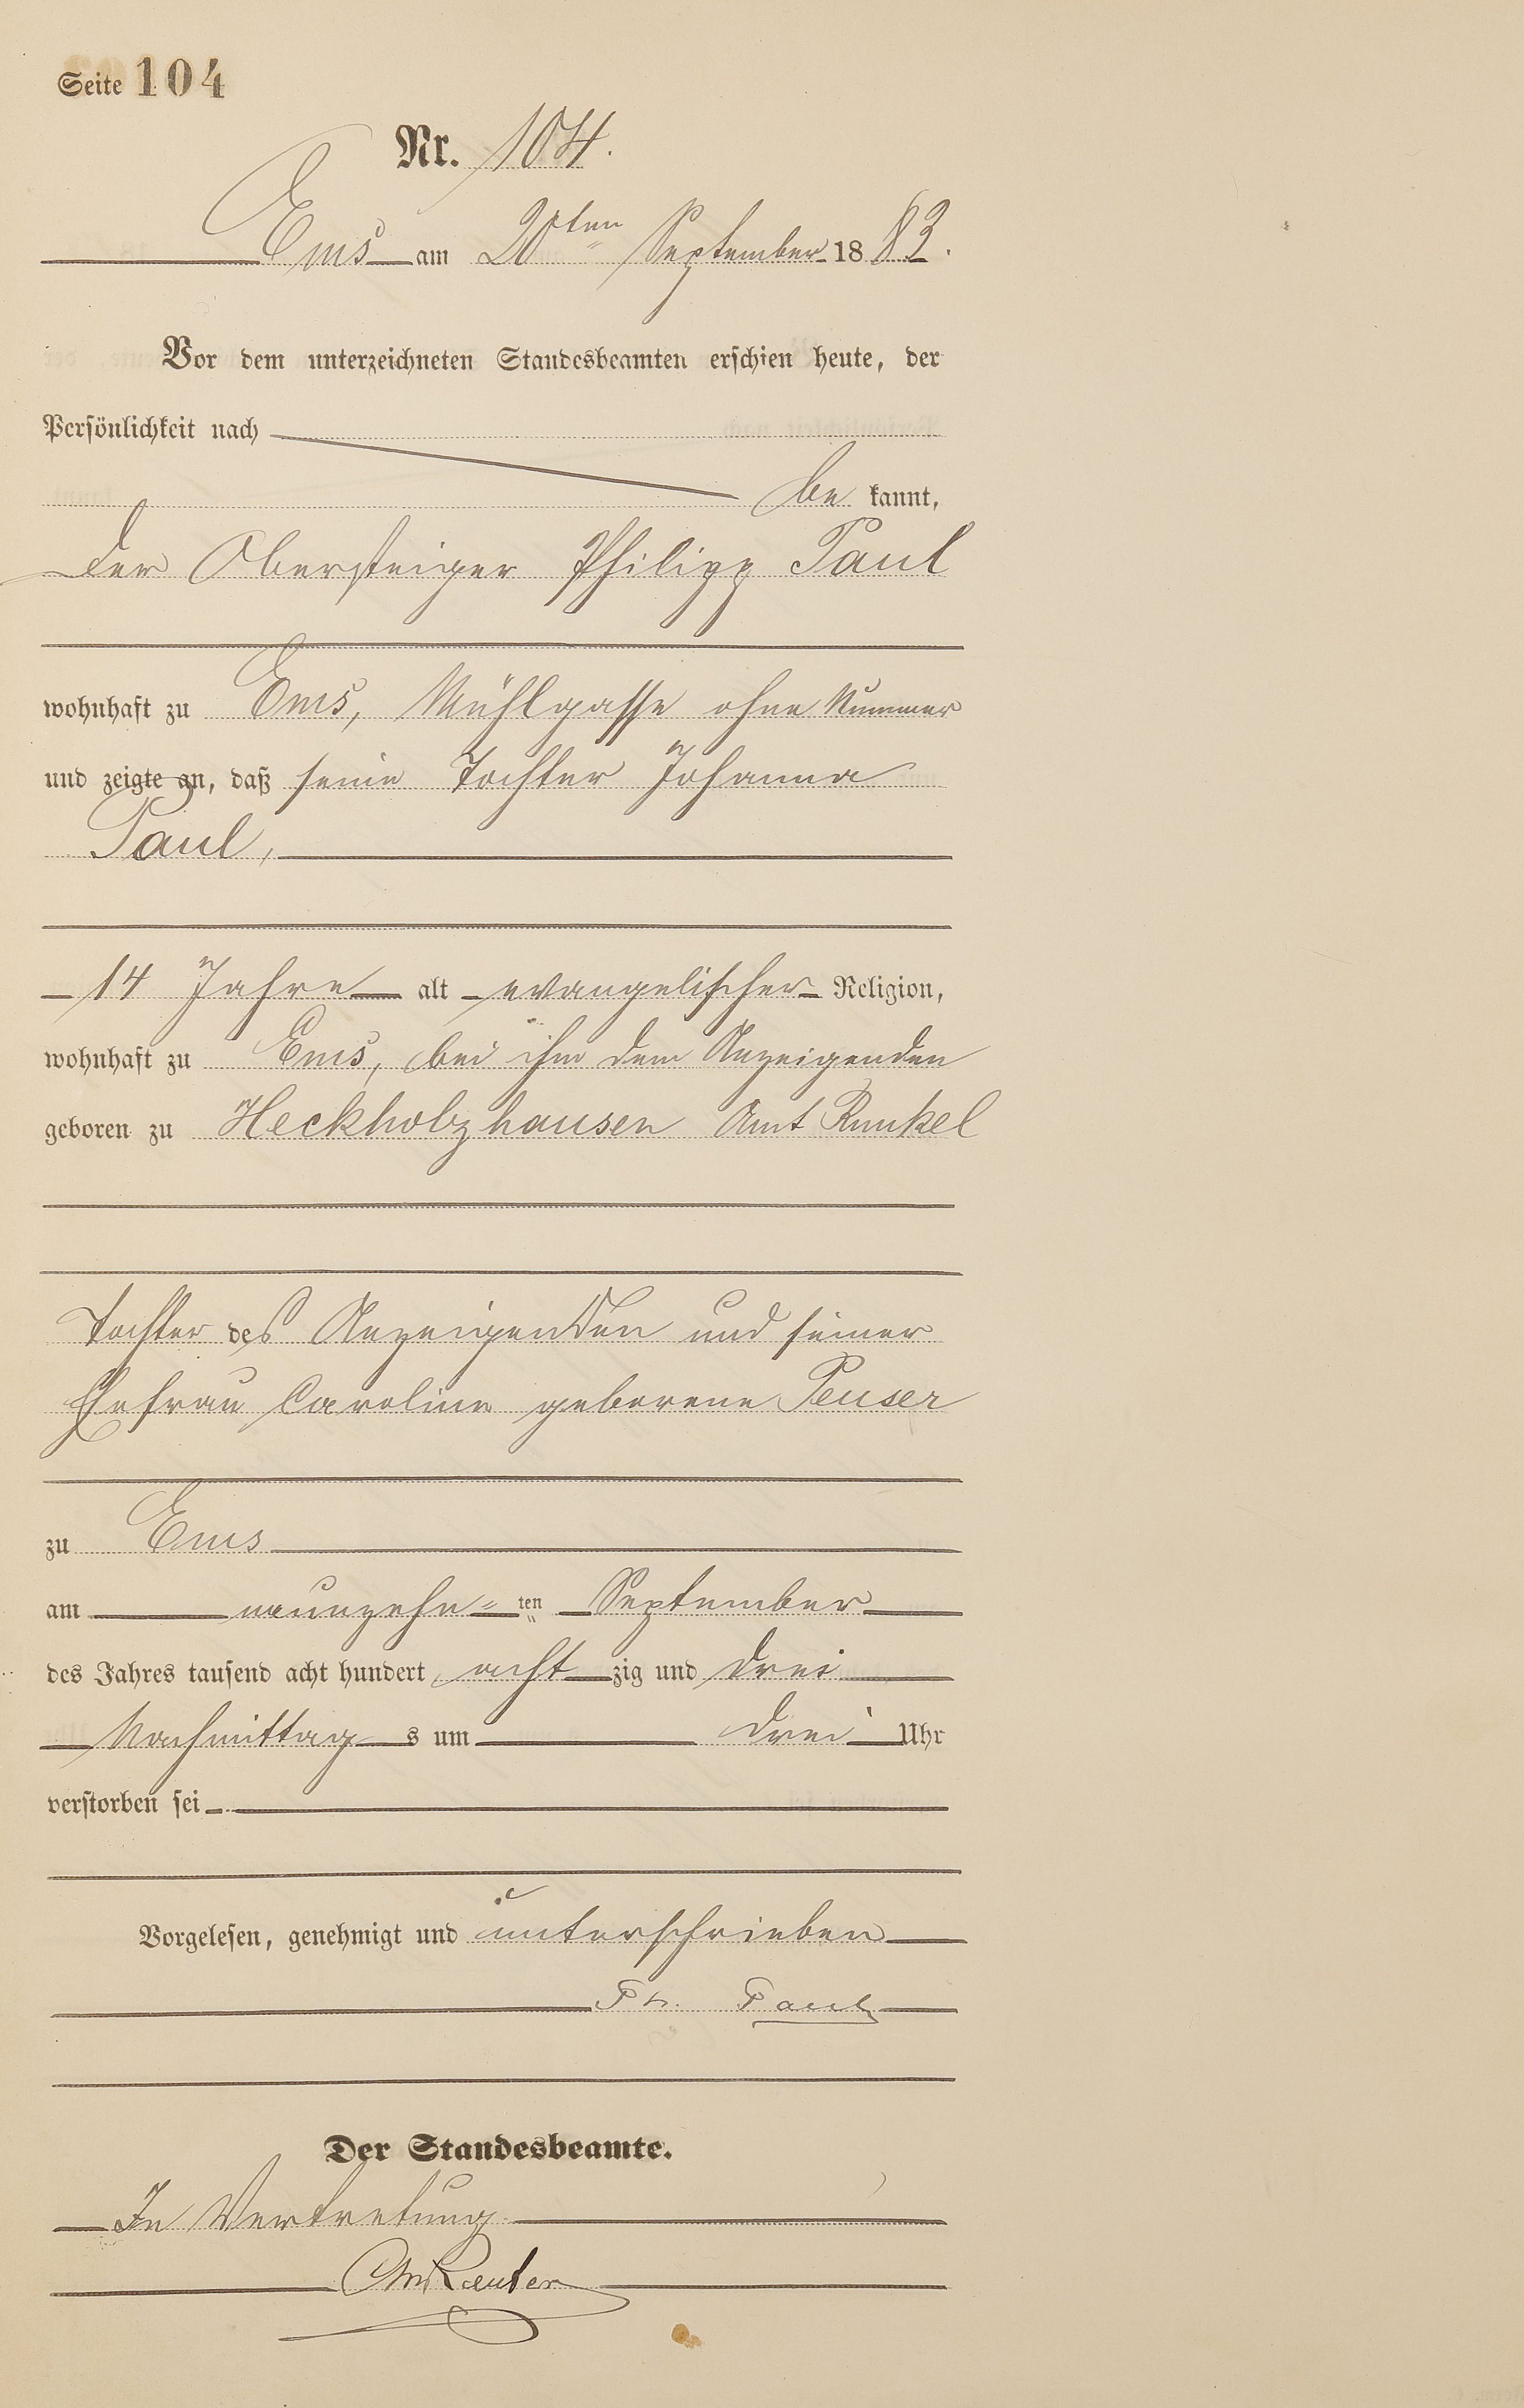 Seite 104
Nr. 104.
Ems am 20ten September 1883.
Vor dem unterzeichneten Standesbeamten erschien heute, der
Persönlichkeit nach
be kannt,
der Obersteiger Philipp Paul
wohnhaft zu Ems, Mühlgasse ohne Nummer
und zeigte an, daß seine Tochter Johanna
Paul,
14 Jahre alt evangelischer Religion,
wohnhaft zu Ems, bei ihm dem Anzeigenden
geboren zu Heckholzhausen Amt Runkel
Tochter des Anzeigenden und seiner
Ehefrau Caroline geborene Peuser
zu Ems
am neunzehn ten September
des Jahres tausend acht hundert acht zig und drei
Nachmittag s um drei Uhr
verstorben sei
Vorgelesen, genehmigt und unterschrieben
Ph. Paul
Der Standesbeamte.
In Vertretung